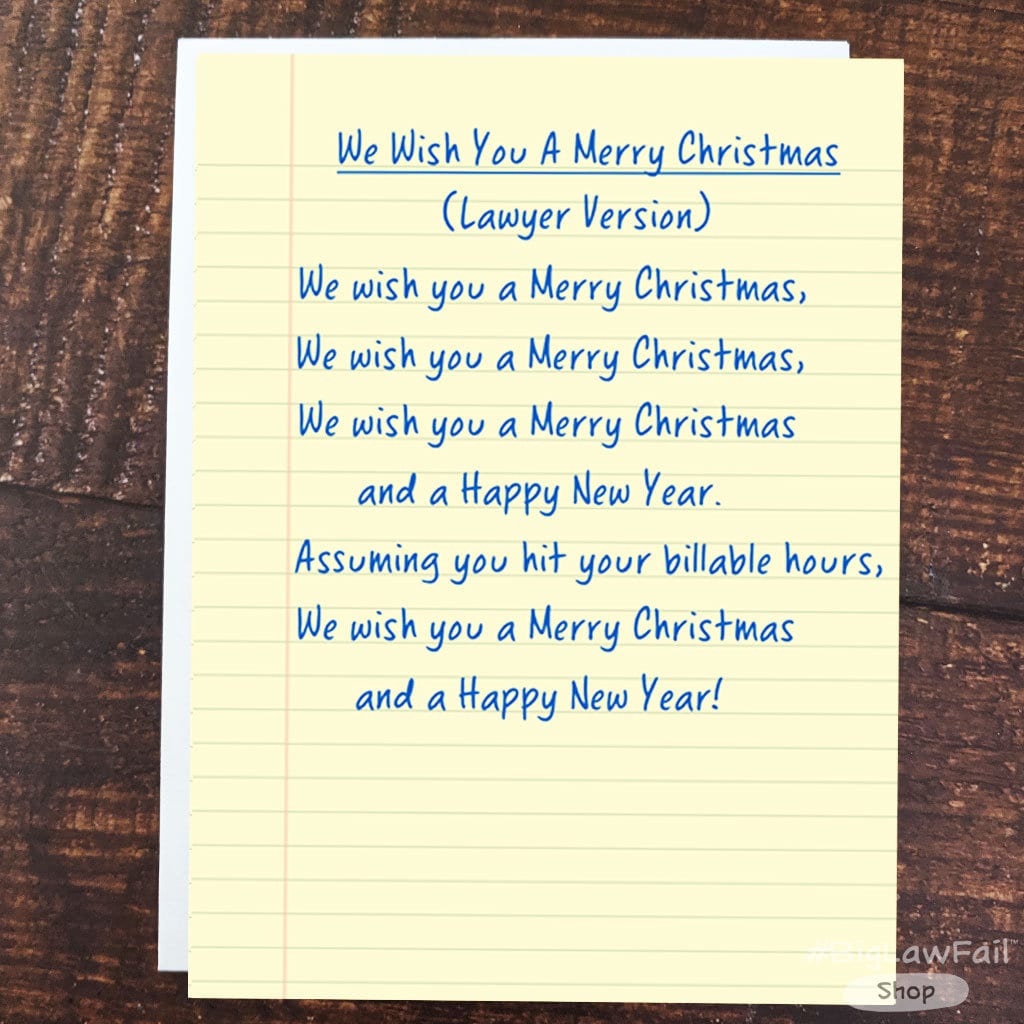 We Wish You A Merry Christmas
(Lawyer Version)
We wish you a Merry Christmas,
We wish you a Merry Christmas,
We wish you a Merry Christmas
and a Happy New Year.
Assuming you hit your billable hours,
We wish you a Merry Christmas
and a Happy New Year!
#BigLawFail™
Shop